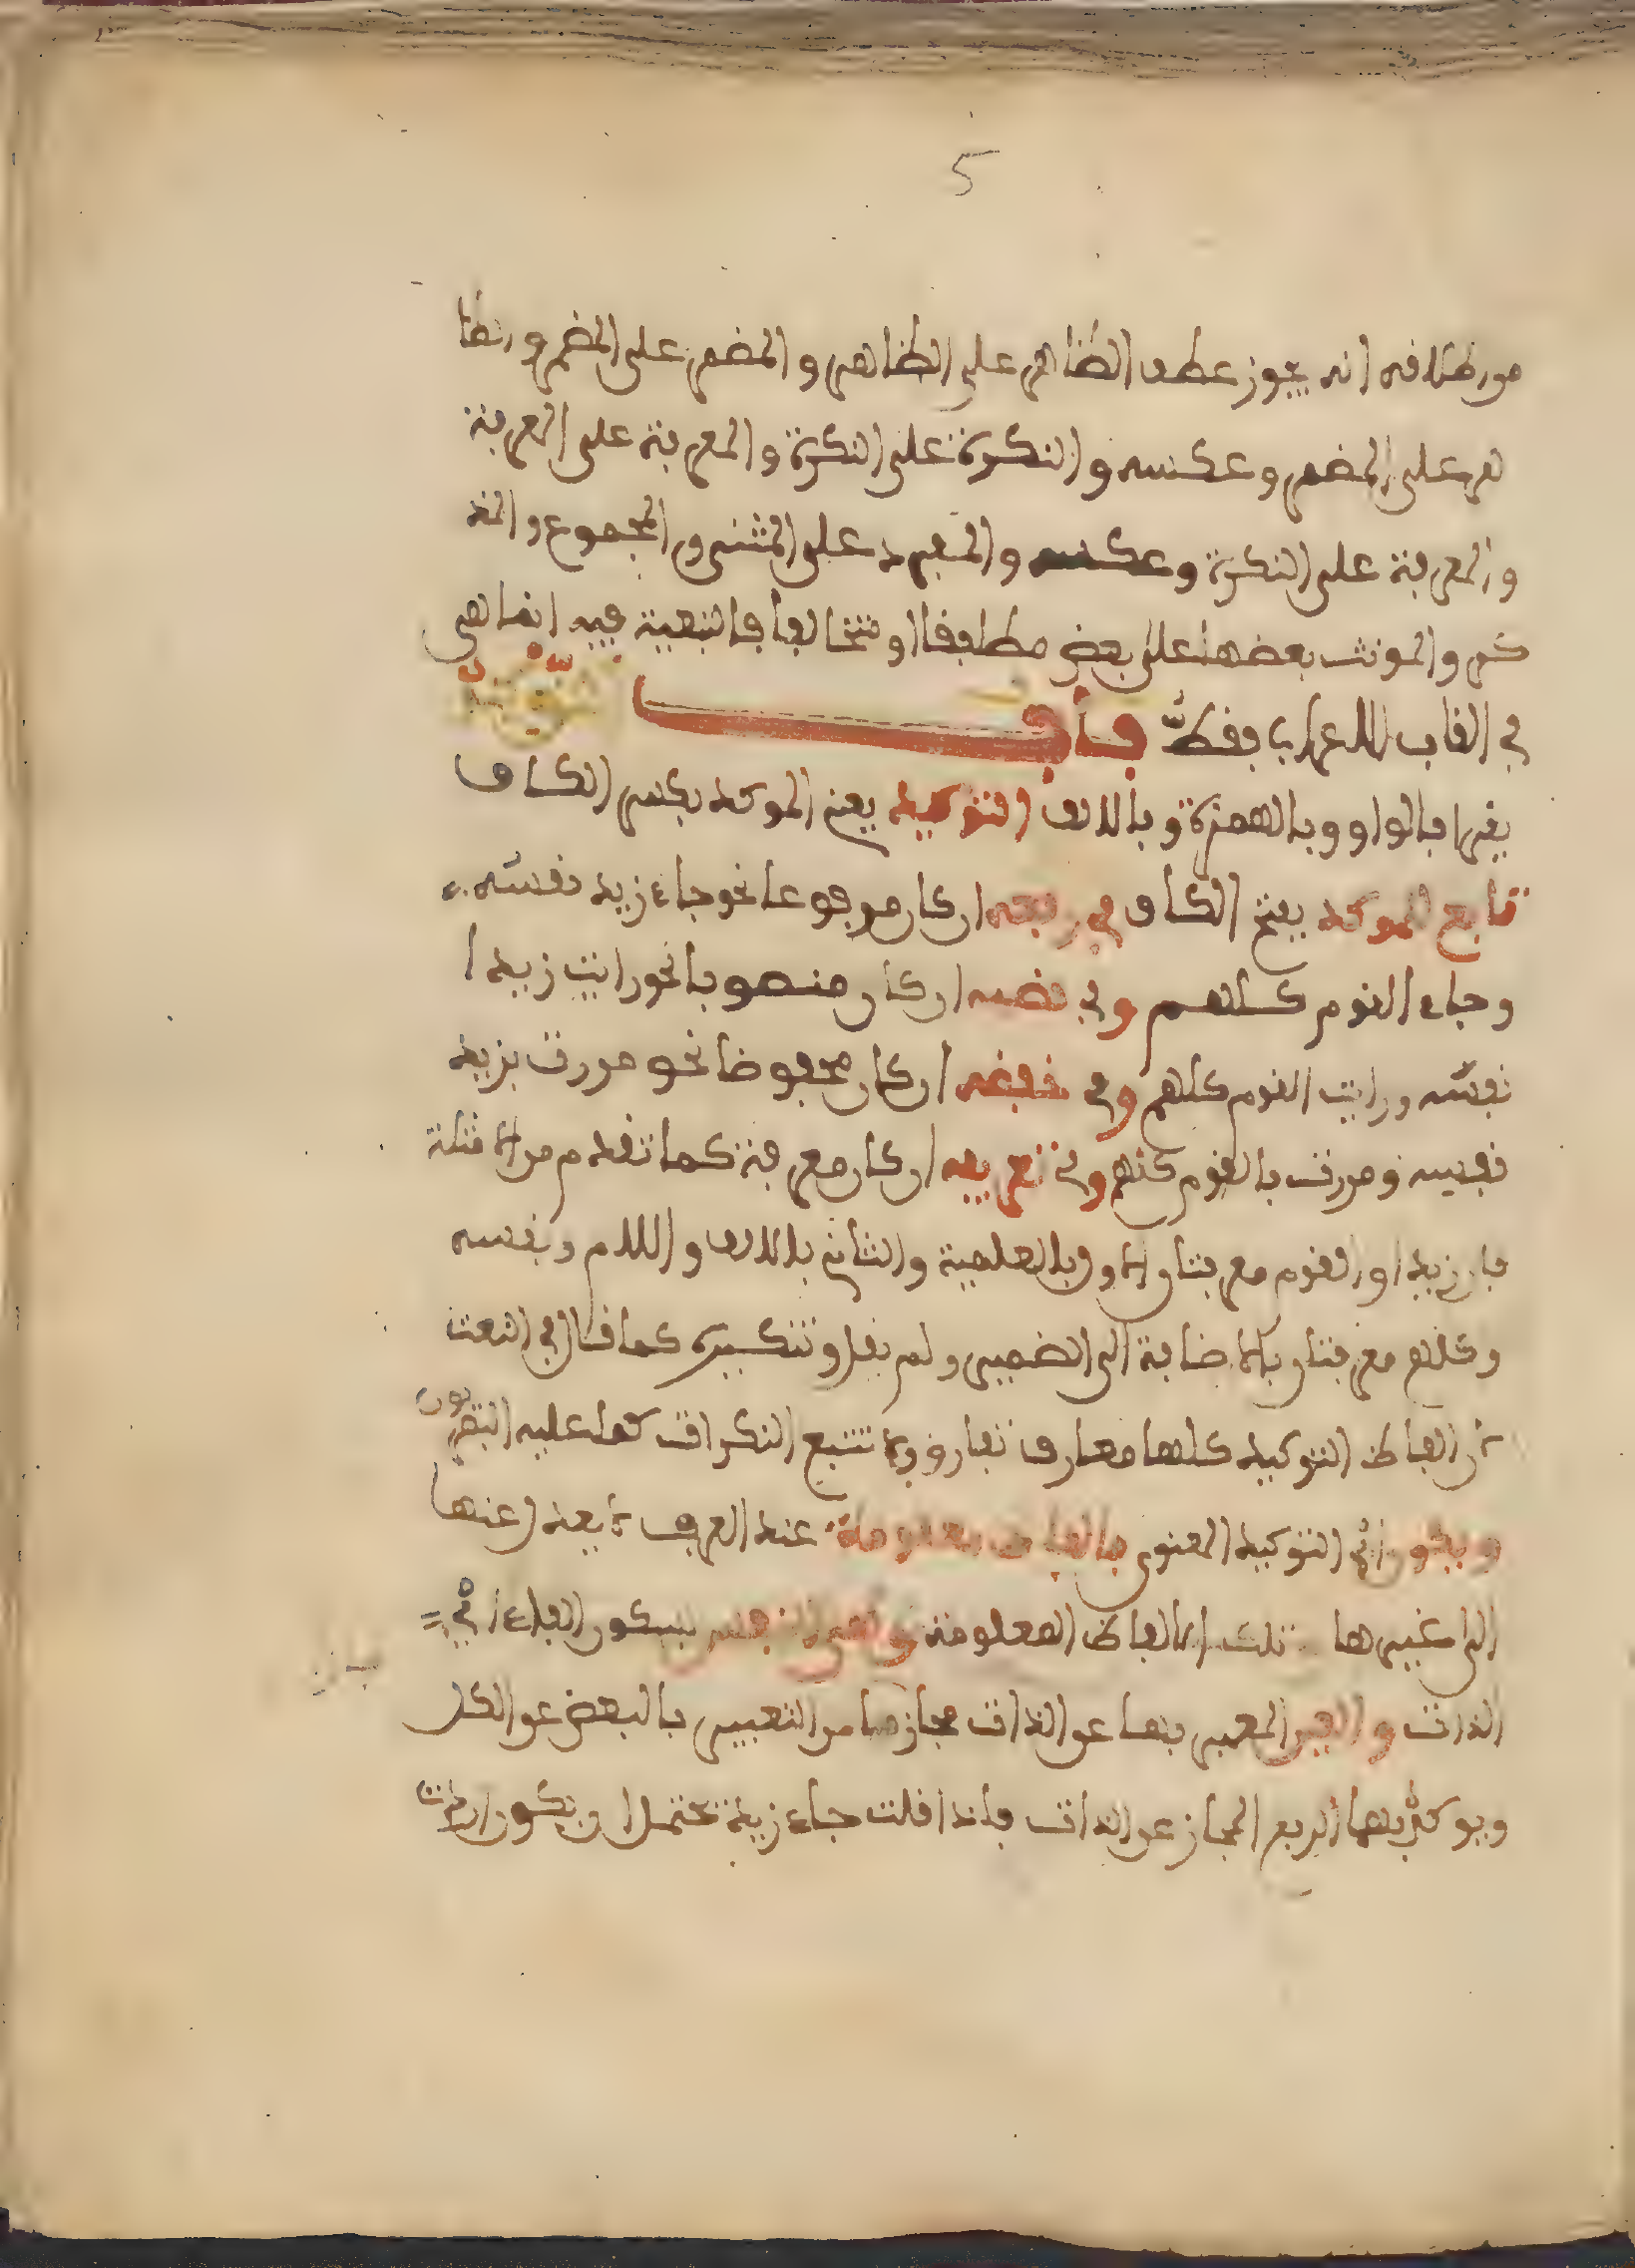 5
من اطلاقه انه يجوز عطف الظاهر على الظاهر والمضمر على المضمر والظا
هر على المضمر وعكسه والنكرة على النكرة والمعرفة على المعرفة
والمعرفة على النكرة وعكسه والمفرد على المثنى والمجموع والمذ
كر والمونث بعضها على بعض مطابقا او متخالفا فالتبعية فيه انما هي
في القاب الاعراب فقط باب
يقرا بالواو وبالهمزة وبالالف التوكيد يعني الموكد بكسر الكاف
تابع للموكد بفتح الكاف في رفعه ان كان مرفوعا نحو جاء زيد نفسه
وجاء القوم كلهم وفي نصبه ان كان منصوبا نحو رايت زيدا
نفسه ورايت القوم كلهم وفي خفضه ان كان مخفوضا نحو مررت بزيد
نفسه ومررت بالقوم كلهم وفي تعريفه ان كان معرفة كما تقدم من الامثلة
فان زيدا والقوم معرفتان الاول بالعلمية والثاني بالالف واللام ونفسه
وكلهم معرفتان بالاضافة الى الضمير ولم يقل وتنكيره كما قال في النعت
لان الفاظ التوكيد كلها معارف تتبع النكرات كما عليه البصريون
ويكون اي التوكيد المعنوي بالفاظ معلومة عند العرب لا يعدل عنها
الى غيرها تلك الالفاظ المعلومة وهي النفس بسكون الفاء اي
الذات والعين المعبر بها عن الذات مجازا من التعبير بالبعض عن الكل
ويوكد بهما لرفع المجاز عن الذات فاذا قلت جاء زيد تحتمل ان يكون اردت